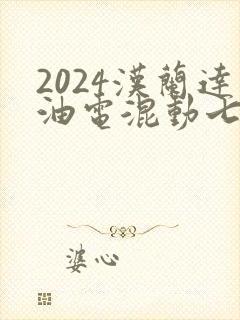 2024漢蘭達
油電混動七
婆心